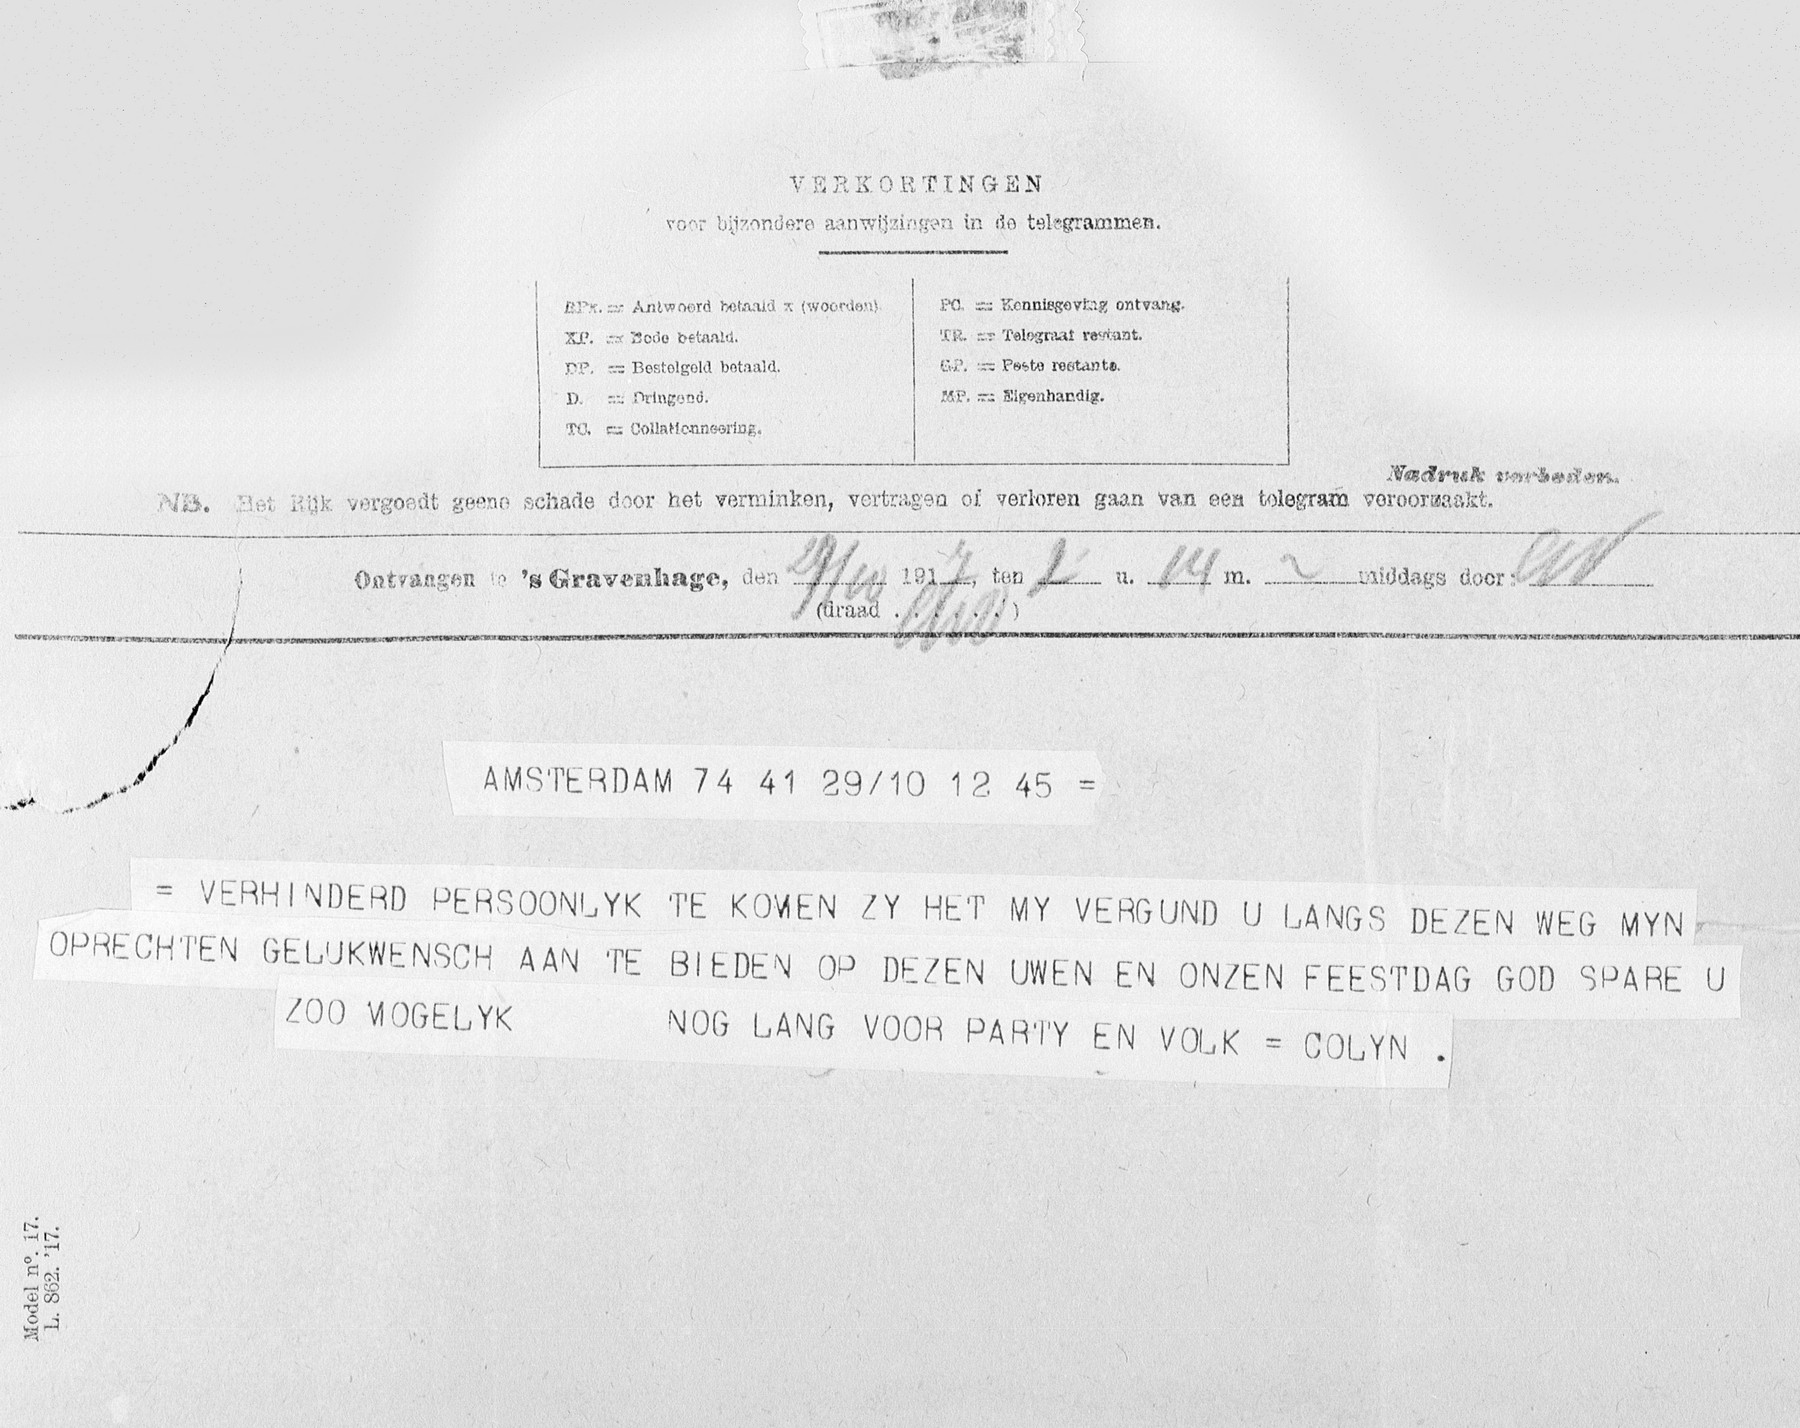 VERKORTINGEN
voor bijzondere aanwijzingen in de telegrammen.
RPx. = Antwoord betaald x (woorden).
XP. = Bode betaald.
DP. = Bestelgeld betaald.
D. = Dringend.
TC. = Collationneering.
PC. = Kennisgeving ontvang.
TR. = Telegraaf restant.
GP. = Poste restante.
MP. = Eigenhandig.
Nadruk verboden.
NB. Het Rijk vergoedt geene schade door het verminken, vertragen of verloren gaan van een telegram veroorzaakt.
Ontvangen te 's Gravenhage, den 29/10 1917, ten u. 14 m. middags door:
(draad . . . . . .)
AMSTERDAM 74 41 29/10 12 45 =
= VERHINDERD PERSOONLYK TE KOMEN ZY HET MY VERGUND U LANGS DEZEN WEG MYN
OPRECHTEN GELUKWENSCH AAN TE BIEDEN OP DEZEN UWEN EN ONZEN FEESTDAG GOD SPARE U
ZOO MOGELYK NOG LANG VOOR PARTY EN VOLK = COLYN .
Model nº. 17.
L. 862. '17.